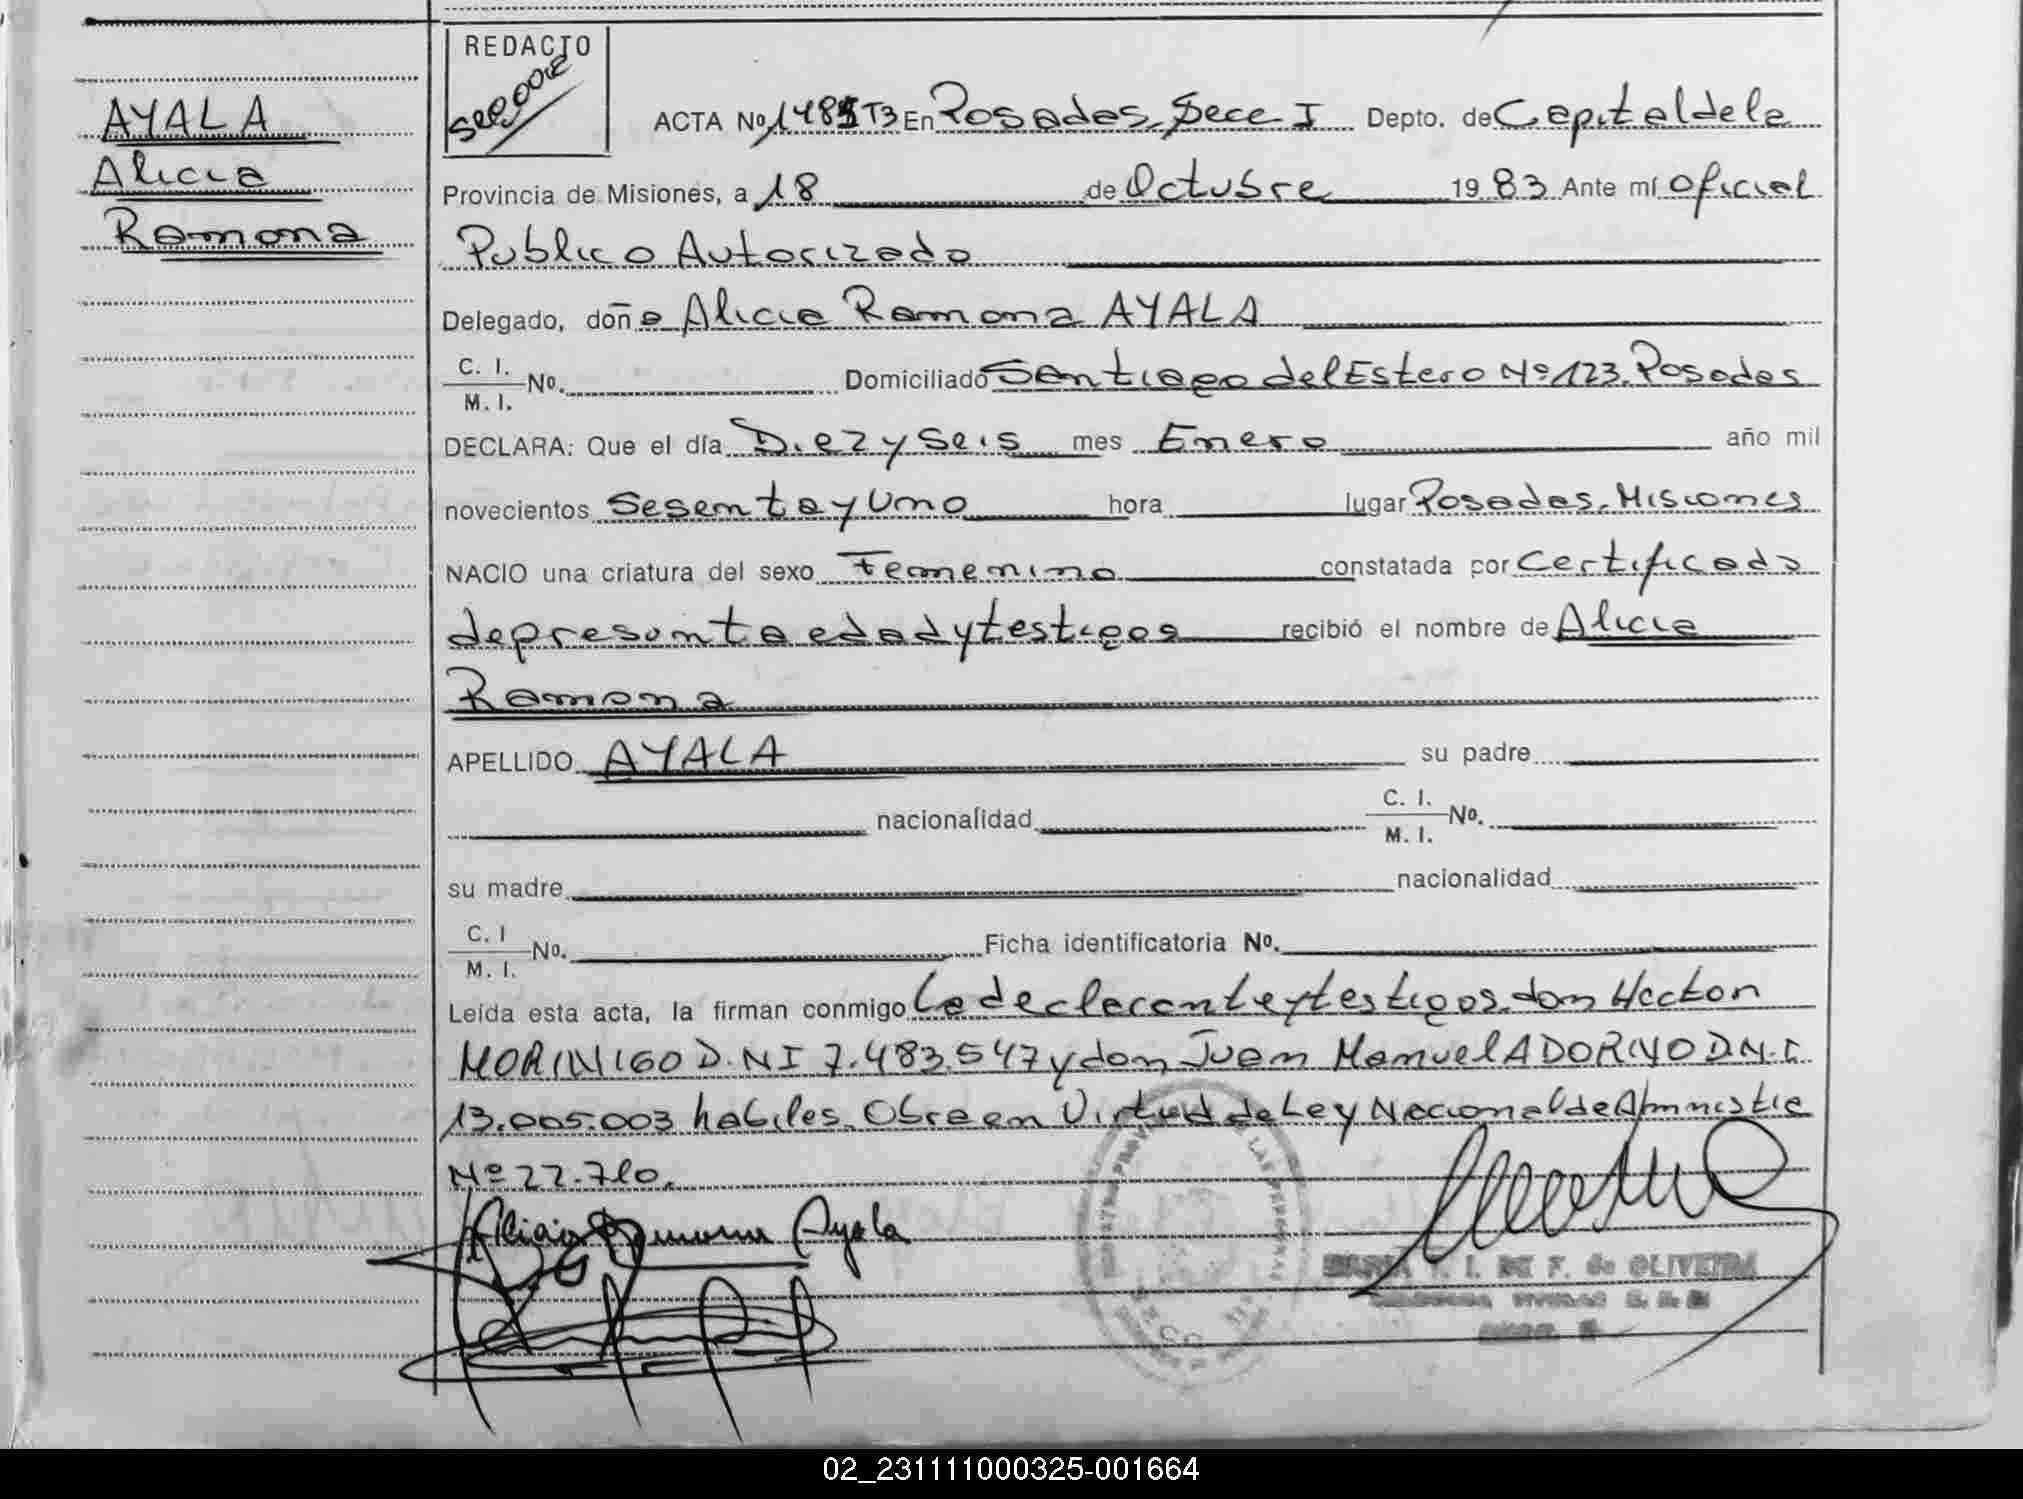 REDACTO
AYALA
Alicia
Ramona
ACTA No. T3 En Posadas, Secc I Depto. de Capital de la
Provincia de Misiones, a 18 de Octubre 1983 Ante mí Oficial
Publico Autorizado
Delegado, doña Alicia Ramona AYALA
C. I.
M. I. No. Domiciliado Santiago del Estero Nº 123. Posadas
DECLARA: Que el día Diez y Seis mes Enero año mil
novecientos Sesenta y Uno hora lugar Posadas, Misiones
NACIO una criatura del sexo Femenino constatada por Certificado
de presunta edad y testigos recibió el nombre de Alicia
Ramona
APELLIDO AYALA su padre
nacionalidad C. I.
M. I. No.
su madre nacionalidad
C. I
M. I. No. Ficha identificatoria No.
Leída esta acta, la firman conmigo la declarante y testigos don Hector
MORINIGO D.NI 7.483.547 y don Juan Manuel ADORNO D.N.I.
13.005.003 habiles. Obra en Virtud de Ley Nacional de Amnistia
Nº 22.710.
Alicia Ramona Ayala
I. DE F. de OLIVEIRA
02_231111000325-001664